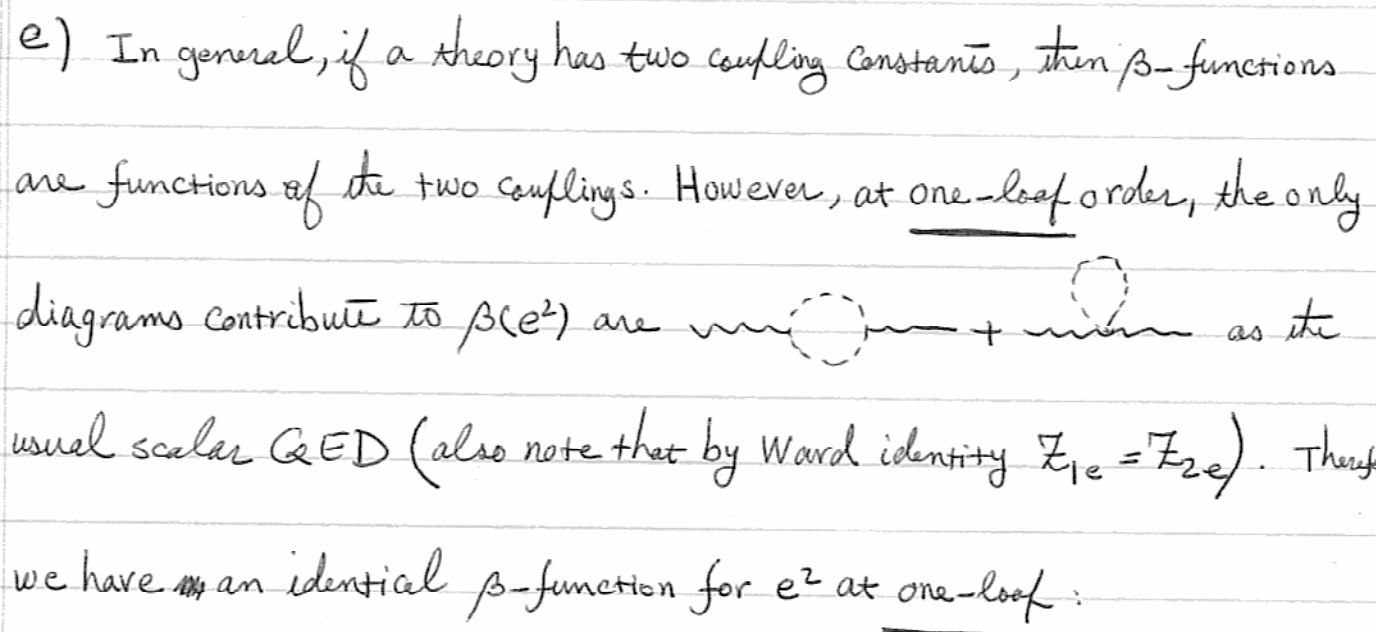 e) In general, if a theory has two coupling constants, then β-functions
are functions of the two couplings. However, at one-loop order, the only
diagrams contribute to β(e²) are + as the
usual scalar QED (also note that by Ward identity Z₁ₑ = Z₂ₑ). Theref
we have an identical β-function for e² at one-loop :